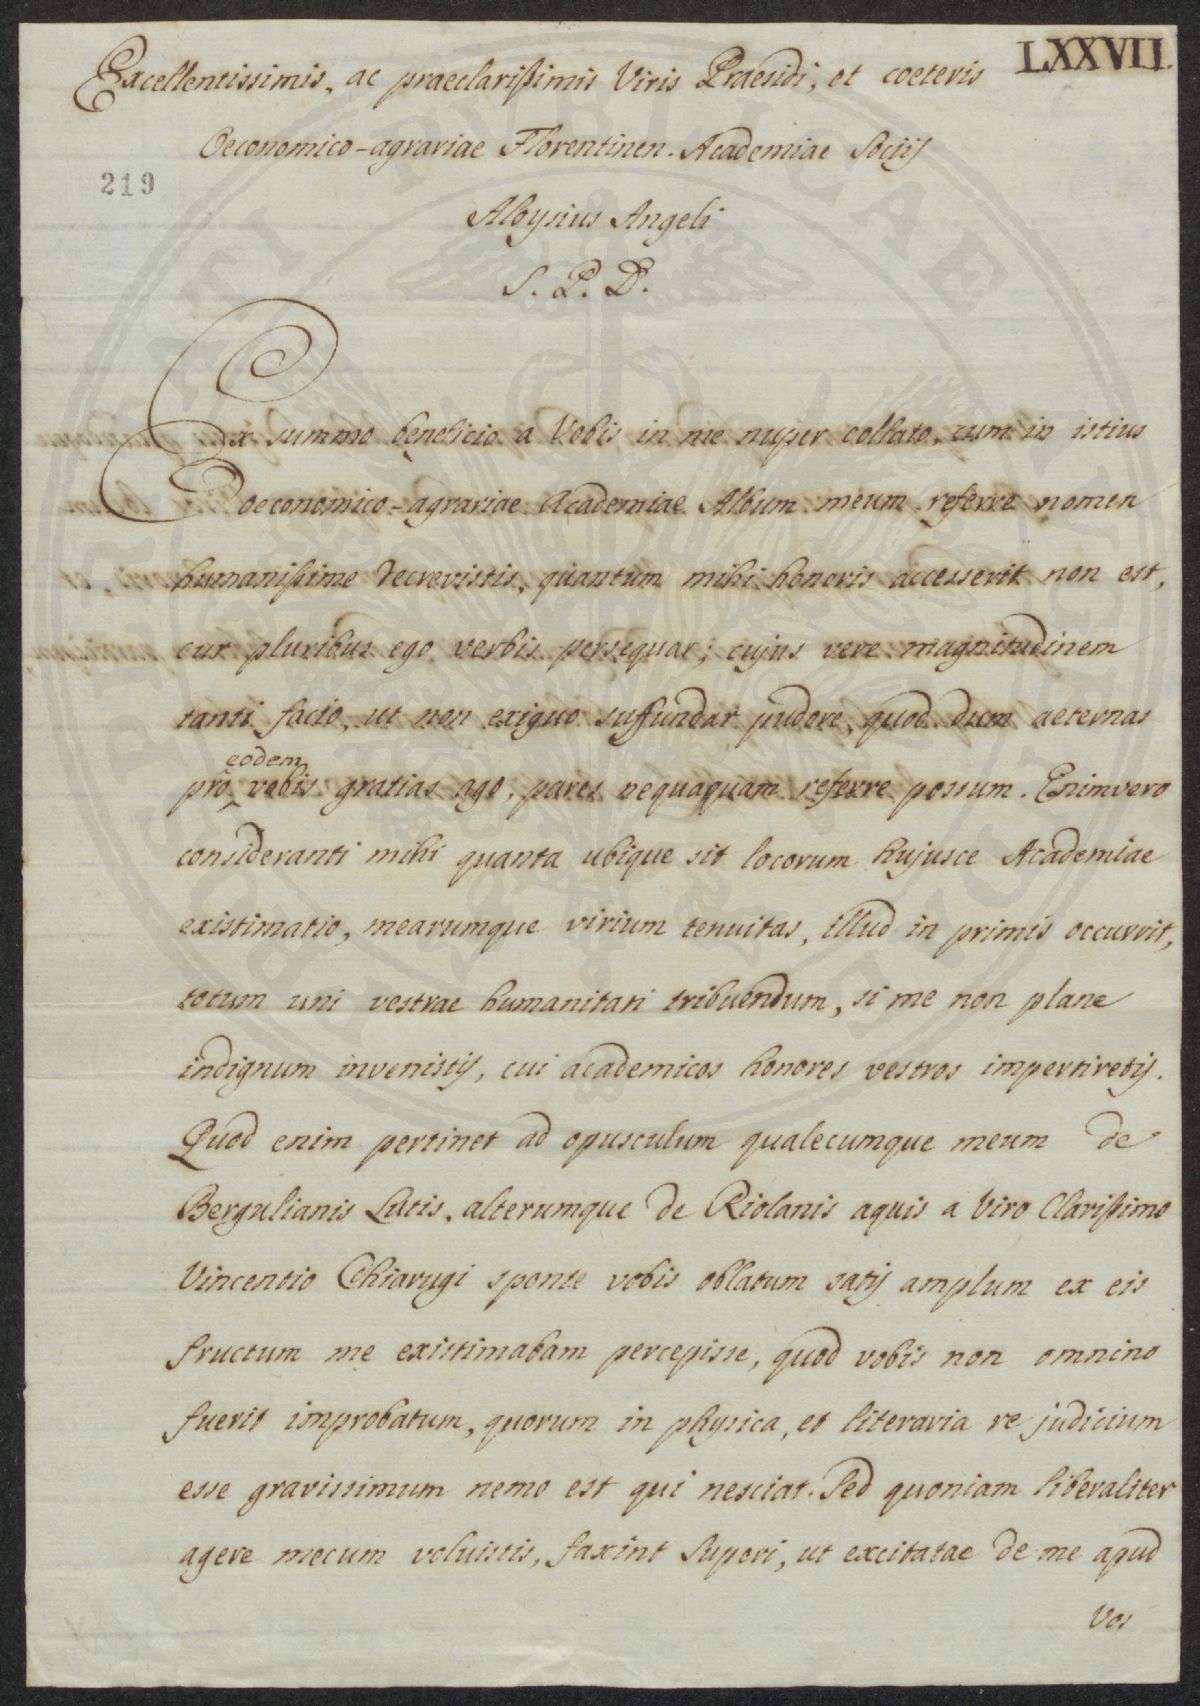 LXXVII.
Excellentissimis, ac praeclarißimis Viris Praesidi, et coeteris
Oeconomico-agrariae Florentinen. Academiae Sociis
219
Aloysius Angeli
S. P. D.
Ex summo beneficio a Vobis in me nuper collato, cum in istius
oeconomico-agrariae Academiae Album meum referre nomen
humanißime decrevistis, quantum mihi honoris accesserit non est,
cur pluribus ego verbis persequar; cujus vere magnitudinem
tanti facio, ut non exiguo suffundar pudore, quod dum aeternas
eodem
pro vobis gratias ago, pares nequaquam referre possum. Enimvero
consideranti mihi quanta ubique sit locorum hujusce Academiae
existimatio, mearumque virium tenuitas, illud in primis occurrit,
totum uni vestrae humanitati tribuendum, si me non plane
indignum invenistis, cui academicos honores vestros impertiretis.
Quod enim pertinet ad opusculum qualecumque meum de
Bergulianis Lutis, alterumque de Riolanis aquis a Viro Clarißimo
Vincentio Chiarugi sponte vobis oblatum satis amplum ex eis
fructum me existimabam percepisse, quod vobis non omnino
fuerit improbatum, quorum in physica, et literaria re judicium
esse gravissimum nemo est qui nesciat. Sed quoniam liberaliter
agere mecum voluistis, faxint Superi, ut excitatae de me apud
Vos